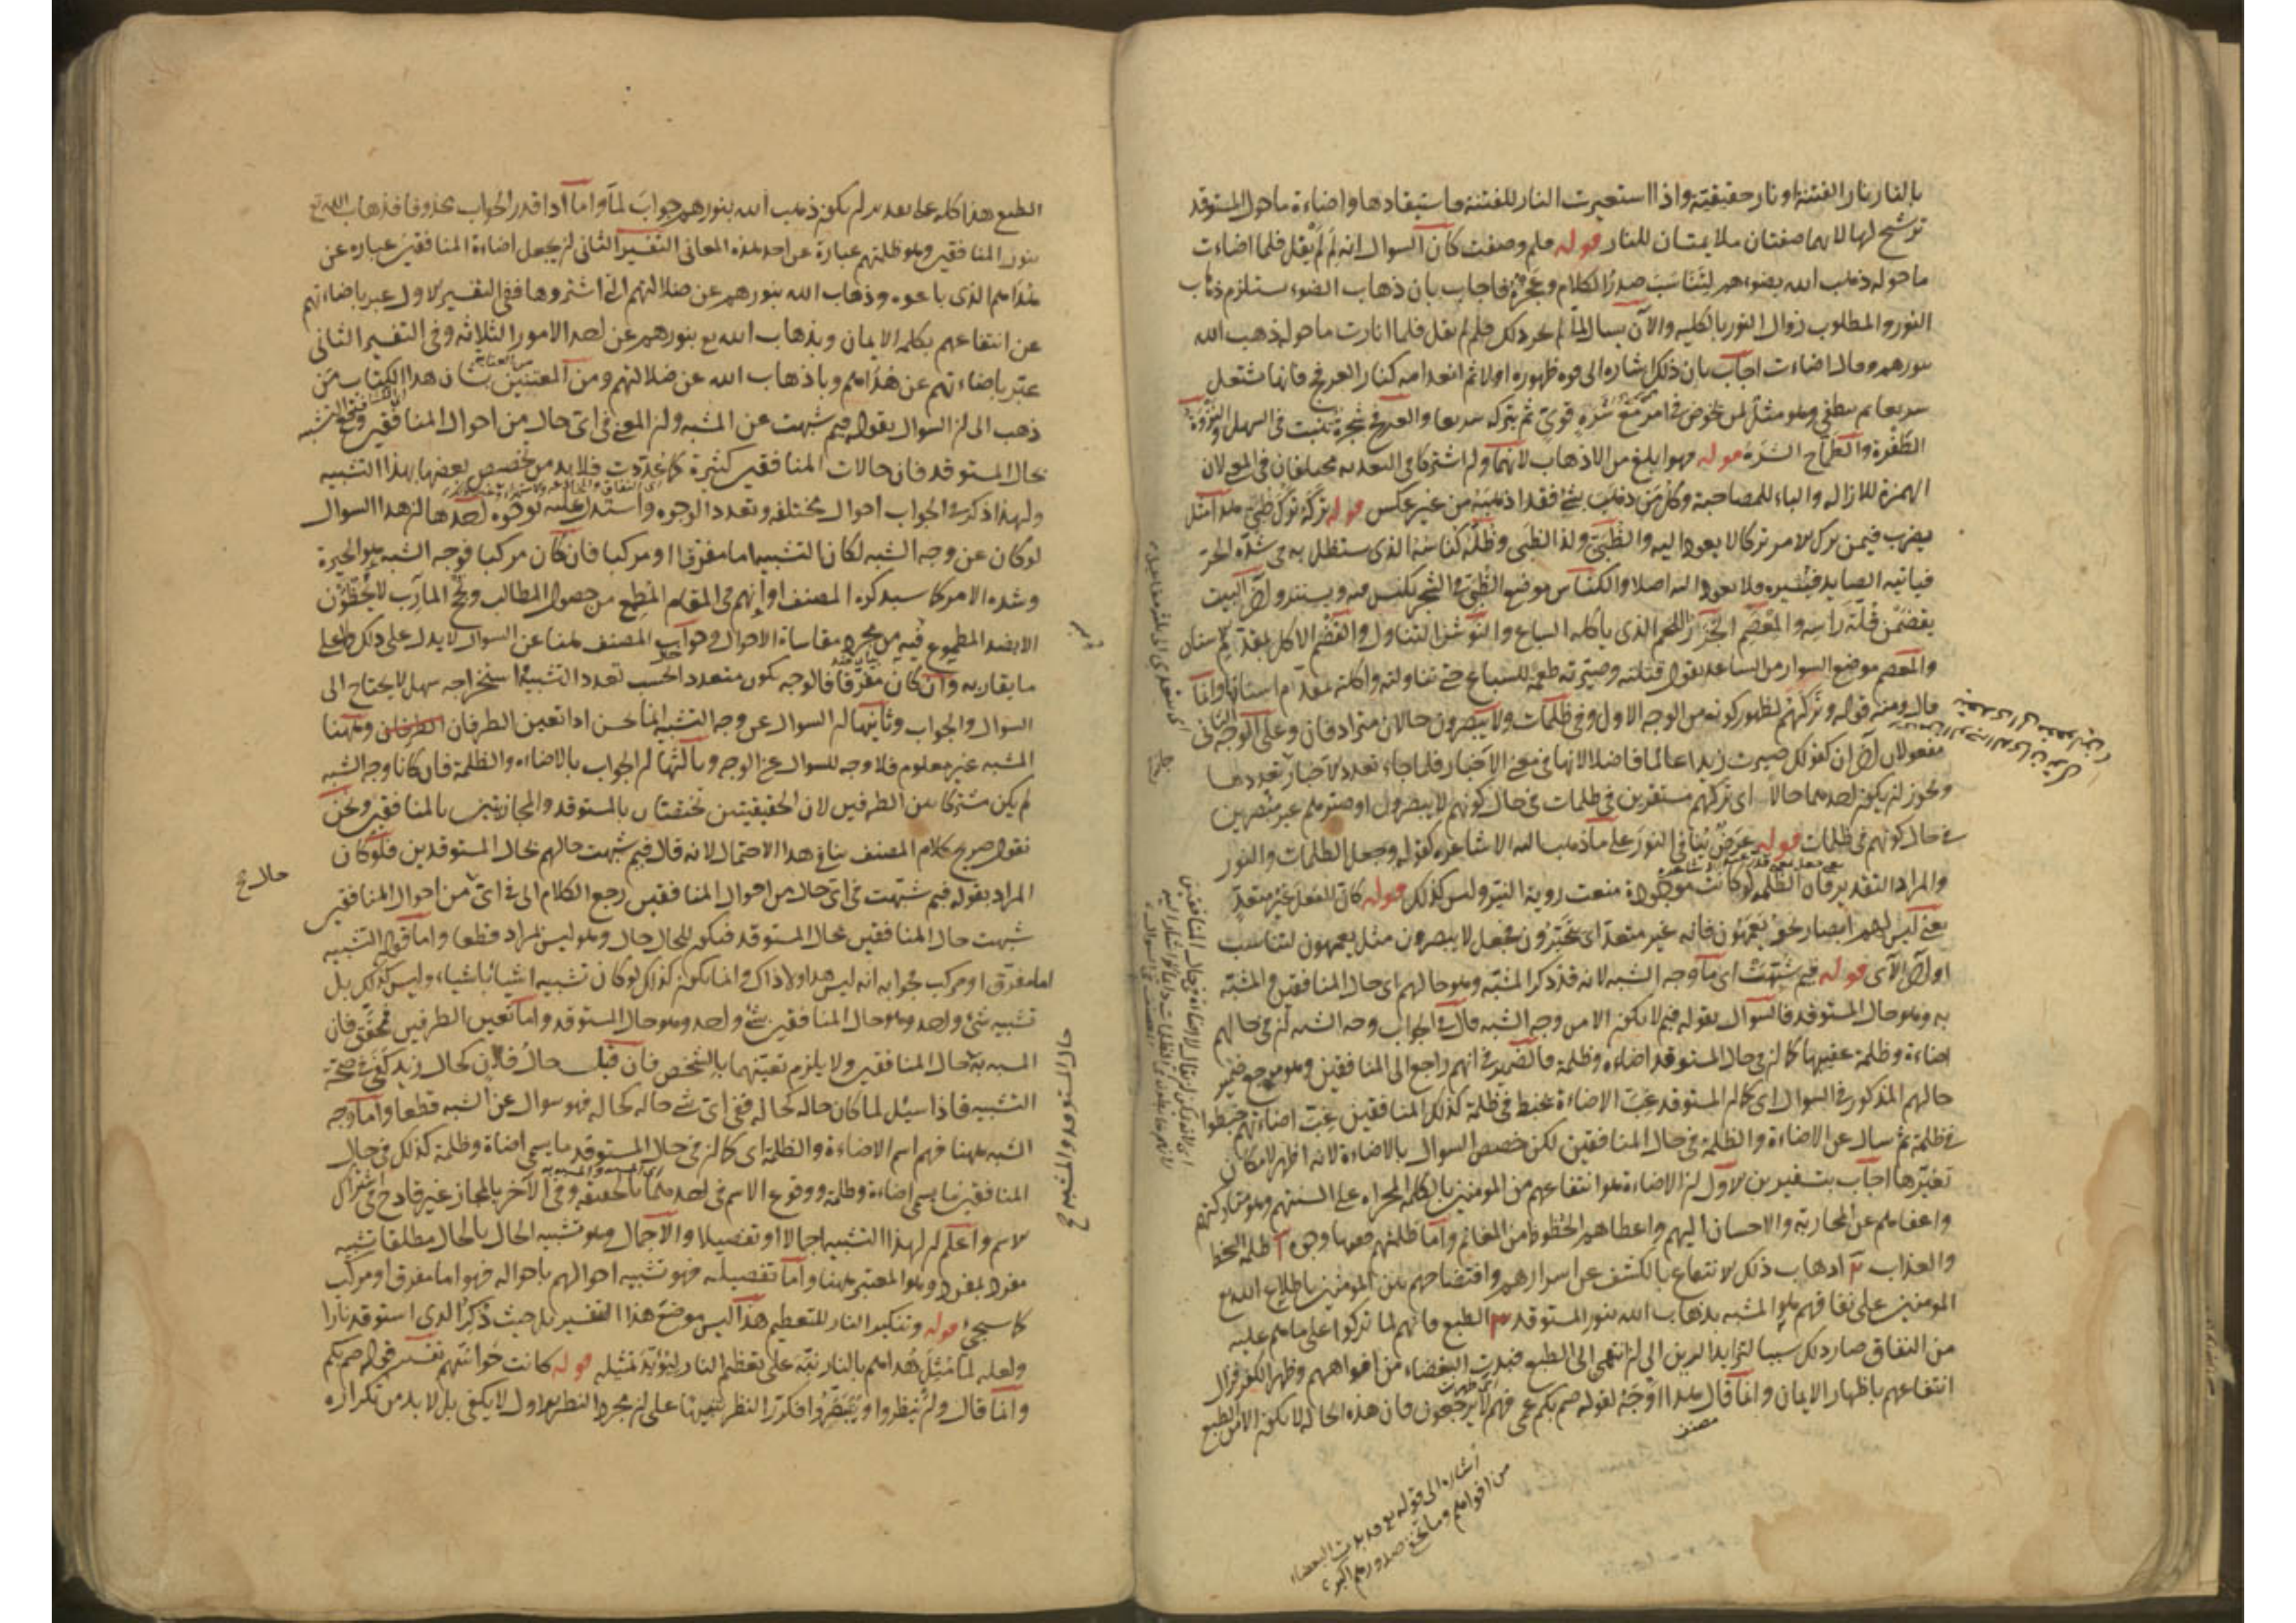 بالنار نار الفتنة او نار حقيقية واذا استعيرت النار للفتنة فاستيقادها واضاءة ما حول المستوقد
ترشيح لها لانهما صفتان ملايمتان للنار قوله فلم وصفت كان السؤال انه لم لم يقل فلما اضاءت
ما حوله ذهب الله بضوءهم لتناسب صدر الكلام وعجزه فاجاب بان ذهاب الضوء يستلزم ذهاب
النور والمطلوب زوال النور بالكلية والآن يسال لما لم يجر ذلك فلم لم يقل فلما انارت ما حوله ذهب الله
بنورهم وقال اضاءت اجاب بان ذلك اشارة الى قوة ظهوره اولا ثم انعدامه كنار العرفج فانها تشتعل
سريعا ثم تنطفي وهو مثل لمن يخوض في امر مع شره قوي ثم يتركه سريعا والعرفج شجرة تنبت في السهل والنزوة
الطفرة والطماح الشره قوله فهو ابلغ من الاذهاب لانهما وان اشتركا في التعدية مختلفان في المعنى لان
الهمزة للازالة والباء للمصاحبة وكل من ذهب بشئ فقد اذهبه من غير عكس قوله تركه ترك ظبي هذا مثل
يضرب فيمن ترك الامر تركا لا يعود اليه والظبي ولد الظبي وظله كناسه الذي يستظل به في شدة الحر
فياتيه الصايد فيثيره فلا يعود اليه اصلا والكناس موضع الظبي في الشجر يكنس فيه ويستتر واول البيت
يقضمن قلة راسه والمعصم الجزر اللحم الذي ياكله السباع والنوش التناول والقضم الاكل بمقدم الاسنان
والمعصم موضع السوار من الساعد يقول قتلته وصيرته طعمة للسباع حتى تناولته واكلته بمقدم اسنانها وانما
قال ومنه قوله وتركهم لظهور كونه من الوجه الاول وفي ظلمات ولا يبصرون حالان مترادفان وعلى الوجه الثاني
مفعولان كقولك صيرت زيدا عالما فاضلا لانها في معنى الاخبار فلما جاء تعدد الاخبار تعددها
ويجوز ان يكون احدهما حالا اي تركهم مستقرين في ظلمات في حال كونهم لا يبصرون او صيرهم غير مبصرين
في حال كونهم في ظلمات قوله عرض ينافي النور على ما ذهب اليه الاشاعرة لقوله وجعل الظلمات والنور
والمراد التقدير فان الظلمة لو كانت موجودة منعت روية النير وليس كذلك قوله كان الفعل غير متعد
يعني ليس لهم ابصار نحو يعمهون فانه غير متعد اي يتحيرون فجعل لا يبصرون مثل يعمهون لتناسب
اول الآي قوله فيم شبهت اي ما وجه الشبه لانه قد ذكر المشبه وهو حالهم اي حال المنافقين والمشبه
به وهو حال المستوقد فالسؤال بقوله فيم لا يكون الا من وجه الشبه قال في الجواب وجه الشبه ان في حالهم
اضاءة وظلمة عقيبها كما ان في حال المستوقد اضاءة وظلمة فالضمير في انهم راجع الى المنافقين وهو مرجع ضمير
حالهم المذكور في السؤال اي كما ان المستوقد غب الاضاءة خبط في ظلمة كذلك المنافقين غب اضاءتهم خبطوا
في ظلمة ثم سال عن الاضاءة والظلمة في حال المنافقين لكن خصص السؤال بالاضاءة لانه اظهر لامكان
تغيرها اجاب بتفسيرين الاول ان الاضاءة هو انتفاعهم من المؤمنين بالكلمة المجراة على السنتهم ومتاركتهم
واعفائهم عن المحاربة والاحسان اليهم واعطاءهم الحظوظ من المغانم واما ظلمتهم ففيها وجوه ا ظلمة السخط
والعذاب ٢ اذهاب ذلك الانتفاع بالكشف عن اسرارهم وافتضاحهم بين المؤمنين باطلاع الله تع
المؤمنين على نفاقهم هو المشبه بذهاب الله بنور المستوقد ٣ الطبع فانهم لما تركوا على ما هم عليه
من النفاق صار ذلك سببا لتزايد الرين الى ان انتهى الى الطبع فبدت البغضاء من افواههم وظهر الكفر فزال
انتفاعهم باظهار الايمان وانما قال هذا اوجه لقوله صم بكم عمي فهم لا يرجعون فان هذه الحالة لا يكون الا من الطبع
اشارة الى قوله تع قد بدت البغضاء
من افواههم وما تخفي صدورهم اكبر
الطبع هذا كله على تقدير ان يكون ذهب الله بنورهم جواب لما واما اذا قدر الجواب محذوفا فذهاب الله تع
بنور المنافقين وهو ظلمتهم عبارة عن احد هذه المعاني التفسير الثاني ان يجعل اضاءة المنافقين عبارة عن
هداهم الذي باعوه وذهاب الله بنورهم عن ضلالتهم التي اشتروها ففي التفسير الاول عبر باضاءتهم
عن انتفاعهم بكلمة الايمان وبذهاب الله تع بنورهم عن احد الامور الثلاثة وفي التفسير الثاني
عبر باضاءتهم عن هداهم وباذهاب الله عن ضلالتهم ومن المعتنين بشان هذا الكتاب من
ذهب الى ان السؤال بقوله فيم شبهت عن المشبه وان المعنى في اي حال من احوال المنافقين وقع التشبيه
بحال المستوقد فان حالات المنافقين كثيرة كما عددت فلا بد من تخصيص بعضها بهذا التشبيه
ولهذا ذكر في الجواب احوال مختلفة وتعدد الوجوه واستدل عليه بوجوه احدها ان هذا السؤال
لو كان عن وجه الشبه لكان التشبيه اما مفرقا او مركبا فان كان مركبا فوجه الشبه هو الحيرة
وشدة الامر كما سيذكره المصنف او انهم في المقام المطمع من حصول المطالب ونجح المآرب لا يحظون
الا بضد المطموع فيه من مجرد مقاساة الاهوال وجواب المصنف ههنا عن السؤال لا يدل على ذلك ولا على
ما يقاربه وان كان مفرقا فالوجه يكون متعددا بحسب تعدد التشبيه استخراجه سهل لا يحتاج الى
السؤال والجواب وثانيها ان السؤال عن وجه التشبيه انما يحسن اذا تعين الطرفان وههنا
المشبه غير معلوم فلا وجه للسؤال عن الوجه وثالثها ان الجواب بالاضاءة والظلمة فان كانا وجه الشبه
لم يكن مشتركا بين الطرفين لان الحقيقيتين تختصان بالمستوقد والمجازيتين بالمنافقين ونحن
نقول صريح كلام المصنف ينافي هذا الاحتمال لانه قال فيم شبهت حالهم بحال المستوقدين فلو كان
المراد بقوله فيم شبهت في اي حال من احوال المنافقين رجع الكلام الى في اي من احوال المنافقين
شبهت حال المنافقين بحال المستوقد فيكون للحال حال وهو ليس المراد قطعا واما قوله التشبيه
اما مفرق او مركب فجوابه انه ليس هذا ولا ذاك وانما يكون كذلك لو كان تشبيه اشياء باشياء وليس كذلك بل
تشبيه شئ واحد وهو حال المنافقين بشئ واحد وهو حال المستوقد واما تعين الطرفين فمحقق فان
المشبه به حال المنافقين ولا يلزم تعينهما بالشخص فان قيل حال فلان كحال زيد كفى في صحة
التشبيه فاذا سئل لما كان حاله كحاله ففي اي شئ حاله كحاله فهو سؤال عن الشبه قطعا واما وجه
الشبه ههنا فهم اسم الاضاءة والظلمة اي كما ان في حال المستوقد ما يسمى اضاءة وظلمة كذلك في حال
المنافقين ما يسمى اضاءة وظلمة ووقوع الاسم في احدهما بالحقيقة وفي الآخر بالمجاز غير قادح في اشتراك
الاسم واعلم ان لهذا التشبيه اجمالا وتفصيلا والاجمال وهو تشبيه الحال بالحال مطلقا تشبيه
مفرد بمفرد وهو المعتبر ههنا واما تفصيله فهو تشبيه احوالهم باحواله فهو اما مفرق او مركب
كما سيجئ قوله وتنكير النار للتعظيم هذا ليس موضع هذا التفسير بل حيث ذكر الذي استوقد نارا
ولعله لما مثل هداهم بالنار نبه على تعظيم النار ليؤيد تمثيله قوله كانت حواسهم تفسير قوله صم بكم
وانما قال ولم ينظروا او يتبصروا فكرر النظر تنبيها على ان مجرد النظر الاول لا يكفي بل لا بد من تكراره
حال المستوقد والمشبه